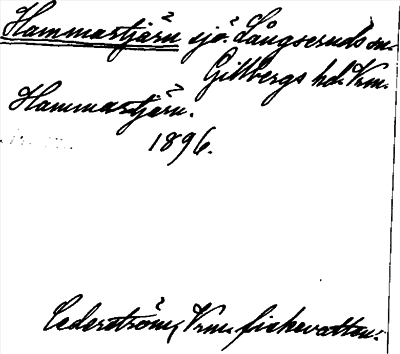 Hammartjärn sjö. Långseruds sn.
Gillbergs hd. Vrm.
Hammartjärn.
1896.
Cederström, Vrm. fiskevatten.